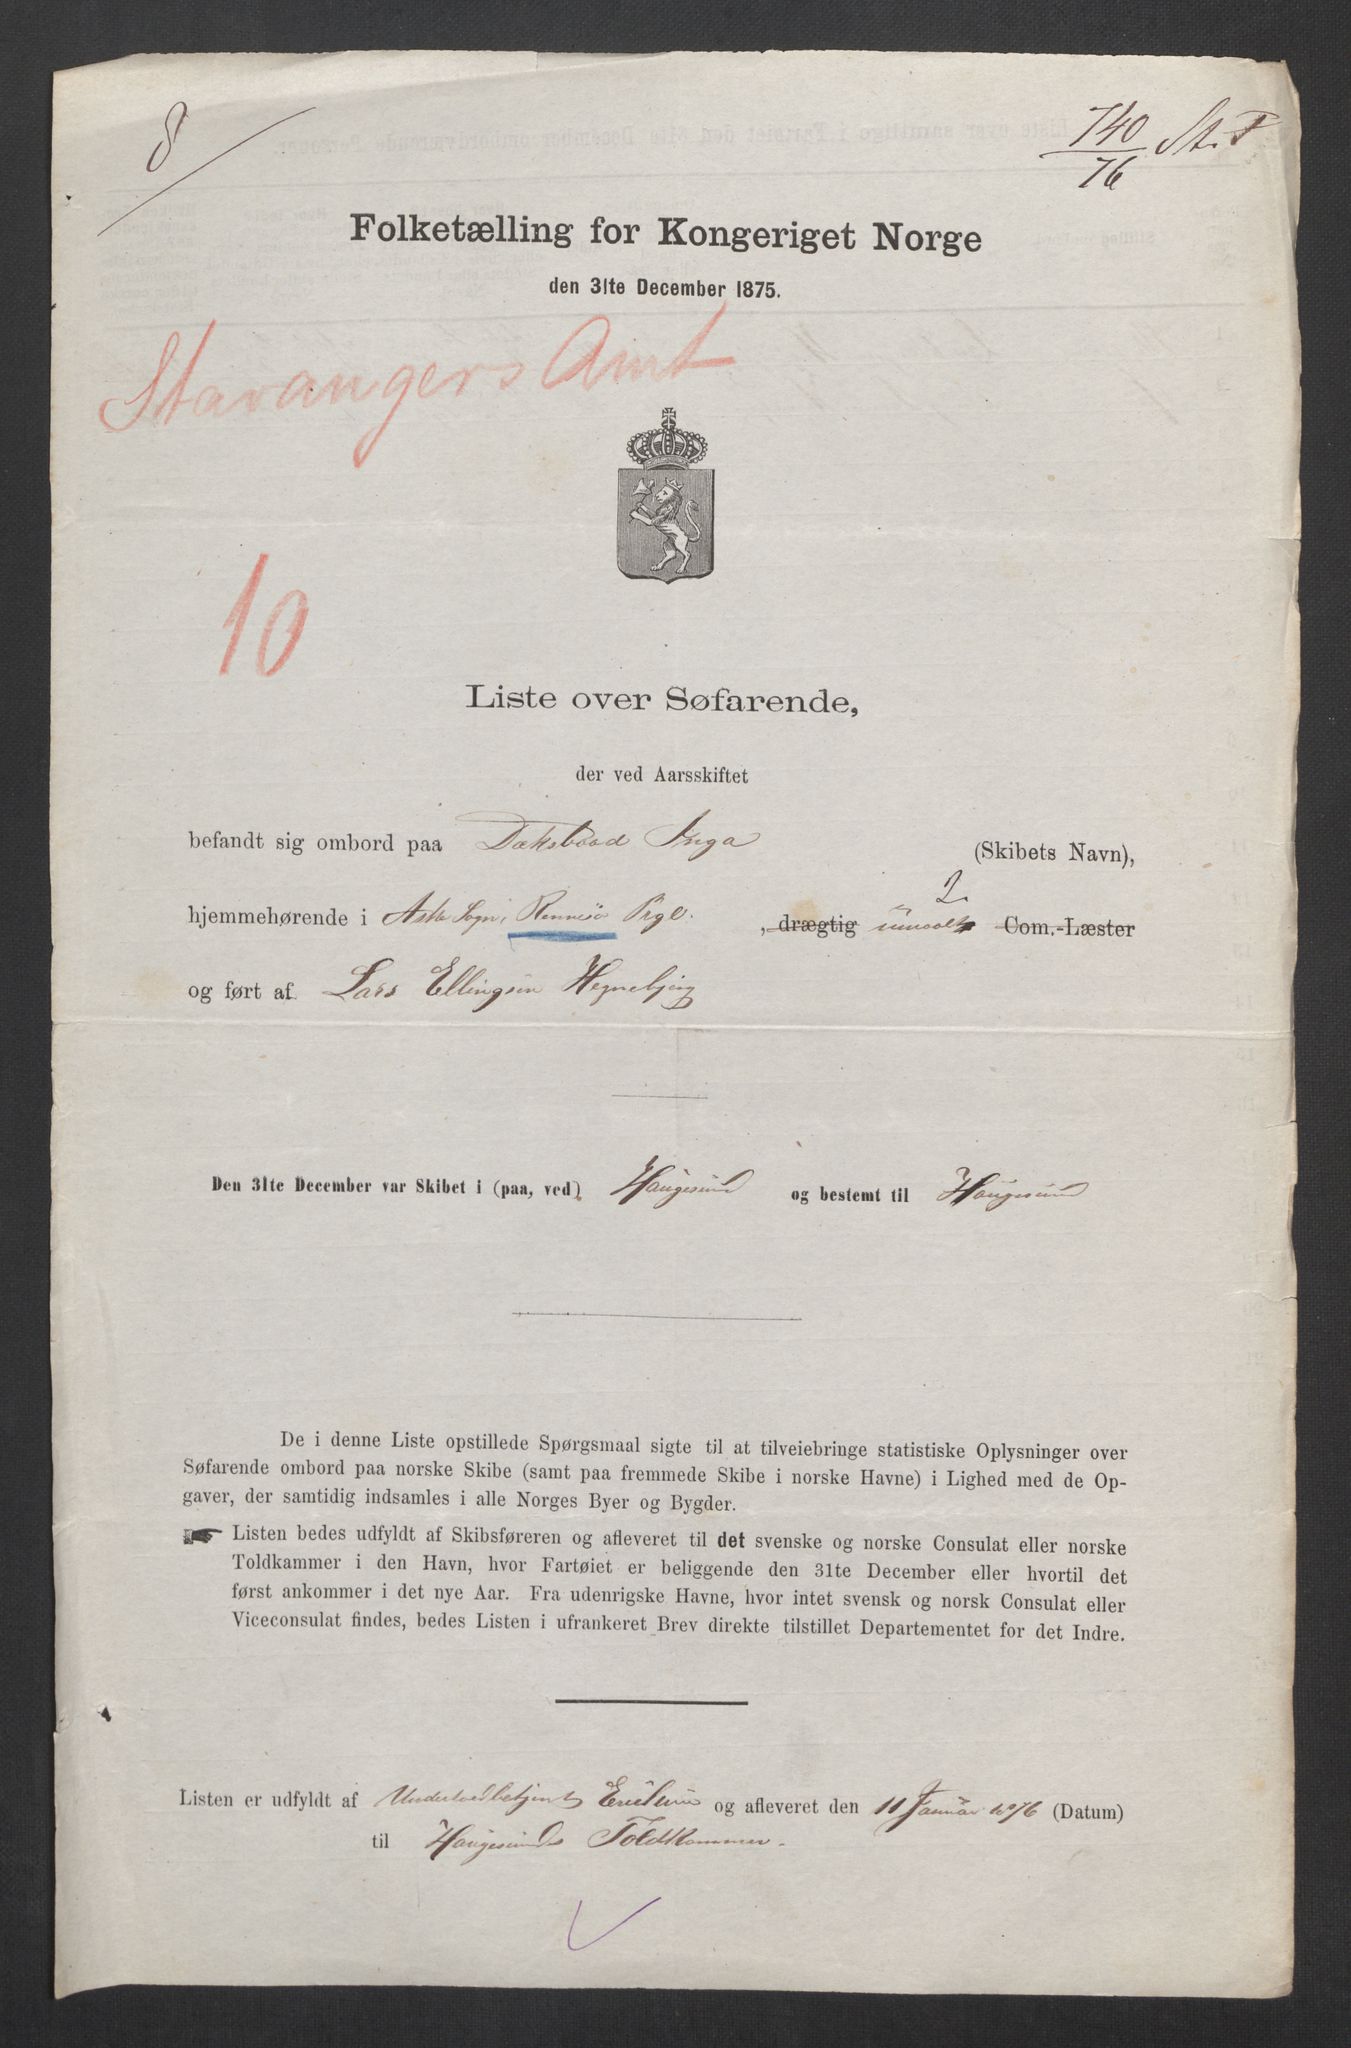 8
740
76 St. T
Folketælling for Kongeriget Norge
den 31te December 1875.
Stavangers Amt
10
Liste over Søfarende,
der ved Aarsskiftet
befandt sig ombord paa Dæksbaad Inga (Skibets Navn),
2
hjemmehørende i Aske Sogn, Rennesø Prgl. , drægtig umaalt Com.-Læster
og ført af Lars Ellingsen Hegnebjerg
Den 31te December var Skibet i (paa, ved) Haugesund og bestemt til Haugesund
De i denne Liste opstillede Spørgsmaal sigte til at tilveiebringe statistiske Oplysninger over
Søfarende ombord paa norske Skibe (samt paa fremmede Skibe i norske Havne) i Lighed med de Op-
gaver, der samtidig indsamles i alle Norges Byer og Bygder.
☛ Listen bedes udfyldt af Skibsføreren og afleveret til det svenske og norske Consulat eller norske
Toldkammer i den Havn, hvor Fartøiet er beliggende den 31te December eller hvortil det
først ankommer i det nye Aar. Fra udenrigske Havne, hvor intet svensk og norsk Consulat eller
Viceconsulat findes, bedes Listen i ufrankeret Brev direkte tilstillet Departementet for det Indre.
Listen er udfyldt af Undertoldbetjent og afleveret den 11 Januar 1876 (Datum)
til Haugesunds Toldkammer.